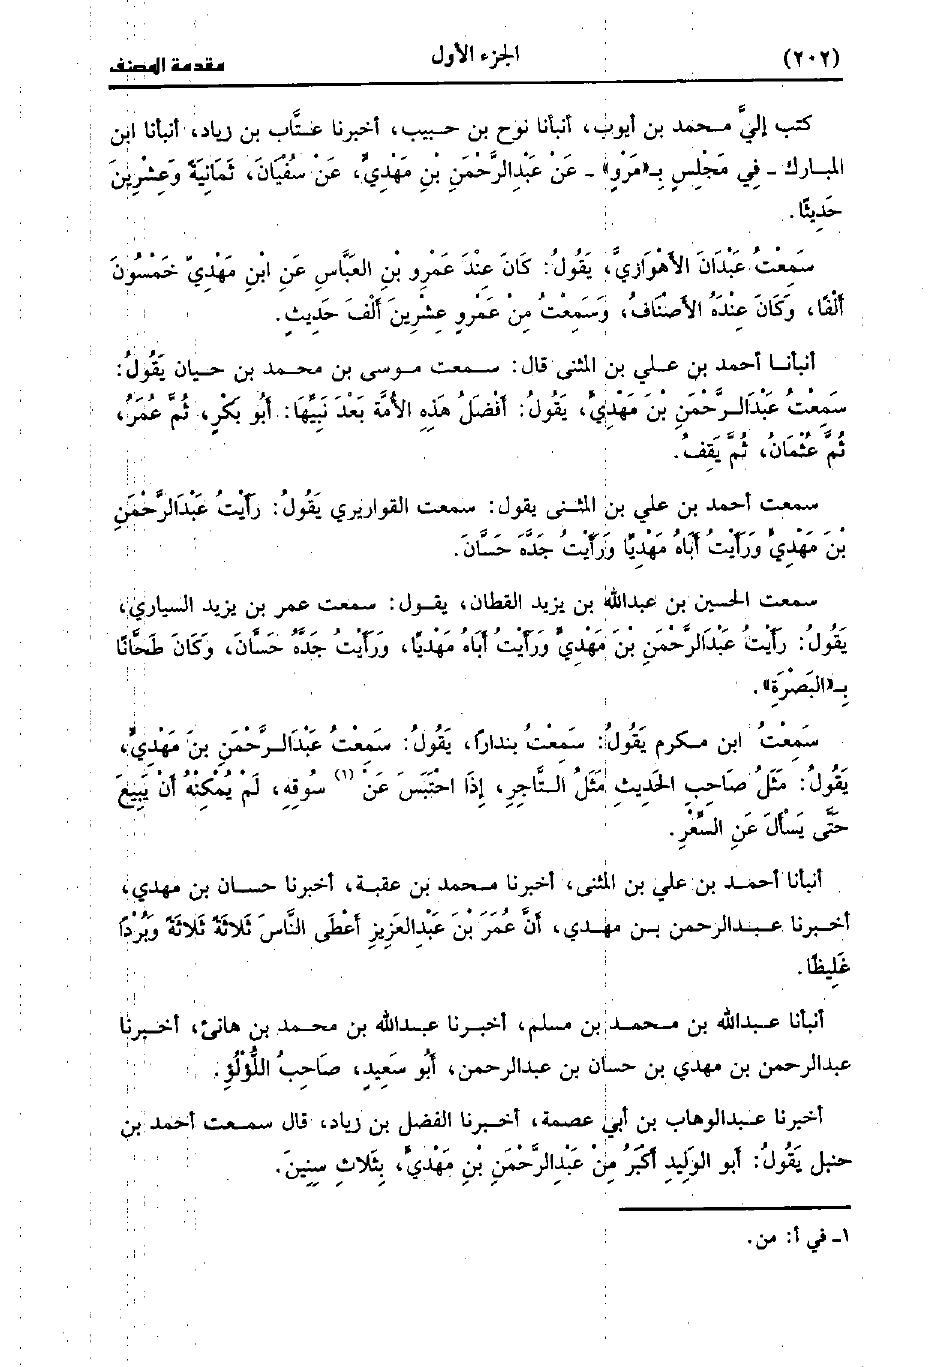 (٢٠٢) الجزء الأول مقدمة المصنف
كتب إليَّ محمد بن أيوب، أنبأنا نوح بن حبيب، أخبرنا عتَّاب بن زياد، أنبأنا ابن
المبارك ـ فِي مَجْلِسٍ بِـ«مَرْوِ» ـ عَنْ عَبْدِالرَّحْمَنِ بْنِ مَهْدِيٍّ، عَنْ سُفْيَانَ، ثَمَانِيَةً وَعِشْرِينَ
حَدِيثًا.
سَمِعْتُ عَبْدَانَ الأَهْوَازِيَّ، يَقُولُ: كَانَ عِنْدَ عَمْرِو بْنِ العَبَّاسِ عَنِ ابْنِ مَهْدِيّ خَمْسُونَ
أَلْفًا، وَكَانَ عِنْدَهُ الأَصْنَافُ، وَسَمِعْتُ مِنْ عَمْرٍو عِشْرِينَ أَلْفَ حَدِيثٍ.
أنبأنا أحمد بن علي بن المثنى قال: سمعت موسى بن محمد بن حيان يَقُولُ:
سَمِعْتُ عَبْدَالرَّحْمَنِ بْنَ مَهْدِيٍّ، يَقُولُ: أَفْضَلُ هَذِهِ الأُمَّة بَعْدَ نَبِيِّهَا: أَبُو بَكْرٍ، ثُمَّ عُمَرُ،
ثُمَّ عُثْمَانُ، ثُمَّ يَقِفُ.
سمعت أحمد بن علي بن المثنى يقول: سمعت القواريري يَقُولُ: رَأَيْتُ عَبْدَالرَّحْمَنِ
بْنَ مَهْدِيٍّ وَرَأَيْتُ أَبَاهُ مَهْدِيًّا وَرَأَيْتُ جَدَّهَ حَسَّانَ.
سمعت الحسين بن عبدالله بن يزيد القطان، يقول: سمعت عمر بن يزيد السياري،
يَقُولُ: رَأَيْتُ عَبْدَالرَّحْمَنِ بْنَ مَهْدِيٍّ وَرَأَيْتُ أَبَاهُ مَهْدِيًّا، وَرَأَيْتُ جَدَّهُ حَسَّانَ، وَكَانَ طَحَّانًا
بِـ«البَصْرَةِ».
سَمِعْتُ ابن مكرم يَقُولُ: سَمِعْتُ بندارًا، يَقُولُ: سَمِعْتُ عَبْدَالرَّحْمَنِ بنَ مَهْدِيٍّ،
يَقُولُ: مَثَلُ صَاحِبِ الحَدِيثِ مَثَلُ التَّاجِرِ، إِذَا احْتَبَسَ عَنْ (١) سُوقِهِ، لَمْ يُمْكِنْهُ أَنْ يَبِيعَ
حَتَّى يَسْأَلَ عَنِ السِّعْرِ.
أنبأنا أحمد بن علي بن المثنى، أخبرنا محمد بن عقبة، أخبرنا حسان بن مهدي،
أخبرنا عبدالرحمن بن مهدي، أَنَّ عُمَرَ بْنَ عَبْدِالعَزِيزِ أَعْطَى النَّاسَ ثَلاثَةً ثَلاثَةً وَبُرْدًا
غَلِيظًا.
أنبأنا عبدالله بن محمد بن مسلم، أخبرنا عبدالله بن محمد بن هانئ، أخبرنا
عبدالرحمن بن مهدي بن حسان بن عبدالرحمن، أَبُو سَعِيدٍ، صَاحِبُ اللُّؤْلُؤِ.
أخبرنا عبدالوهاب بن أبي عصمة، أخبرنا الفضل بن زياد، قال سمعت أحمد بن
حنبل يَقُولُ: أبو الوَلِيدِ أَكْبَرُ مِنْ عَبْدِالرَّحْمَنِ بْنِ مَهْدِيٍّ، بِثَلاثِ سِنِينَ.
١ـ في أ: من.